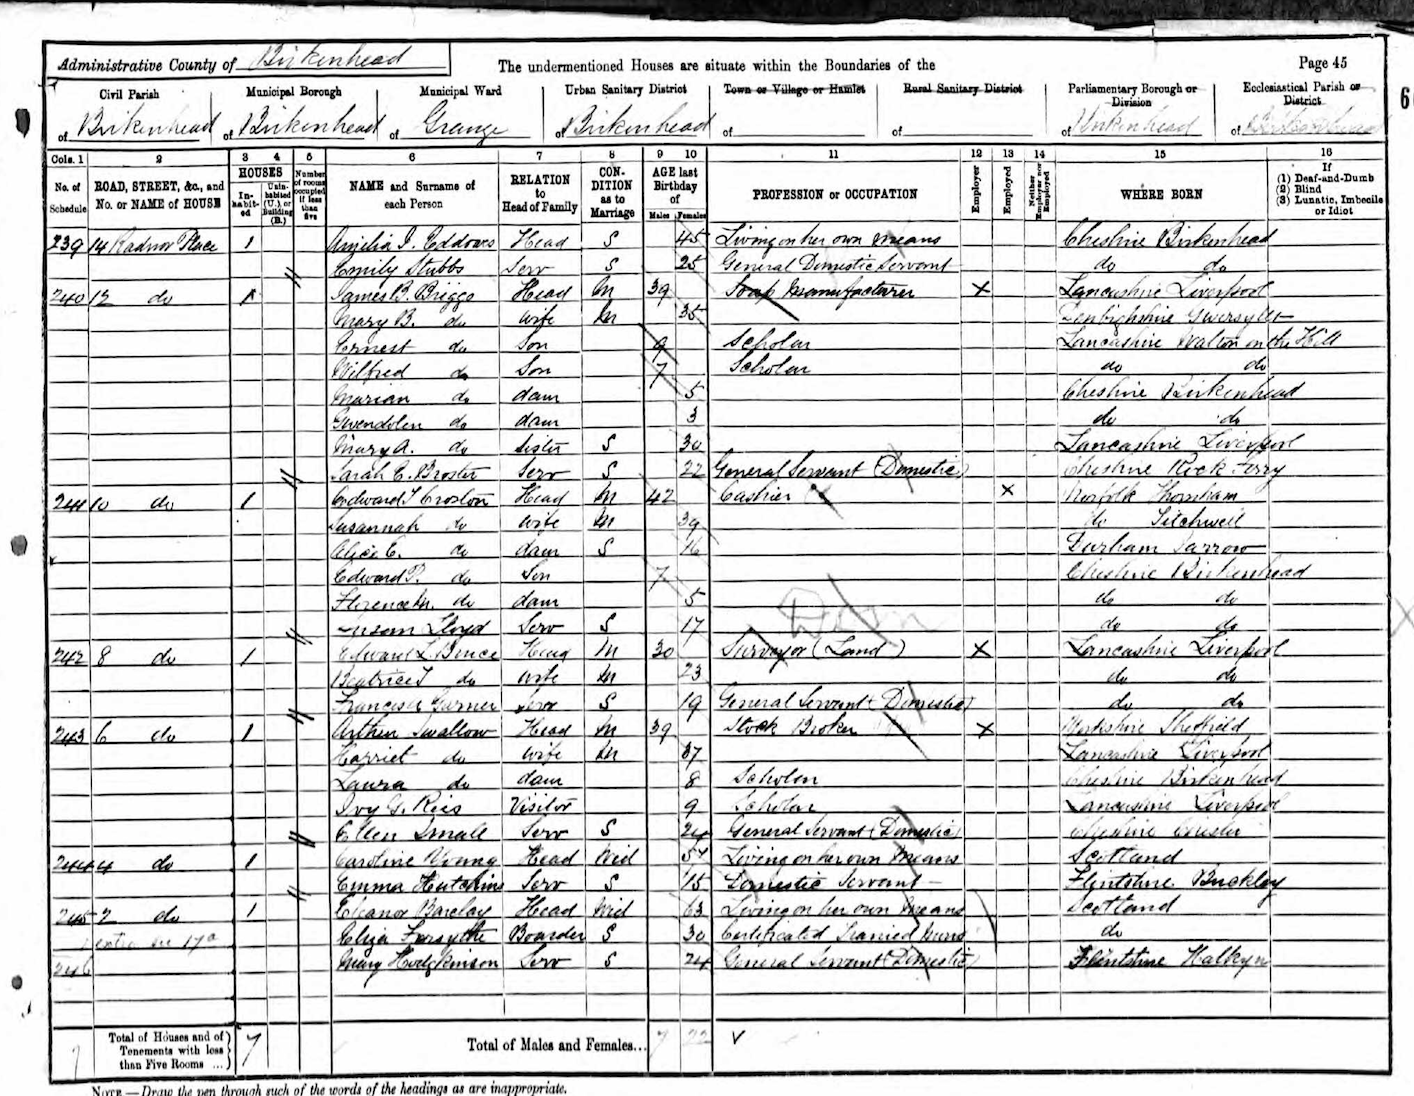 Administrative County of Birkenhead The undermentioned Houses are situate within the Boundaries of the Page 45
6
Civil Parish Municipal Borough Municipal Ward Urban Sanitary District Town or Village or Hamlet Rural Sanitary District Parliamentary Borough or Division Ecclesiastical Parish or District
of Birkenhead of Birkenhead of Grange of Birkenhead of of of Birkenhead of Birkenhead
Cols. 1 2 3 4 5 6 7 8 9 10 11 12 13 14 15 16
No. of Schedule ROAD, STREET, &c., and No. or NAME of HOUSE HOUSES Inhabited Uninhabited (U.), or Building (B.) Number of rooms occupied if less than five NAME and Surname of each Person RELATION to Head of Family CONDITION as to Marriage AGE last Birthday of Males Females PROFESSION or OCCUPATION Employer Employed Neither Employer nor Employed WHERE BORN If (1) Deaf-and-Dumb (2) Blind (3) Lunatic, Imbecile or Idiot
239 14 Radnor Place 1 Amelia J. Eddowes Head S 45 Living on her own means Cheshire Birkenhead
Emily Stubbs Serv S 25 General Domestic Servant do do
240 12 do 1 James B. Briggs Head M 39 Soap Manufacturer X Lancashire Liverpool
Mary B. do Wife M 35 Denbighshire Gwersyllt
Ernest do Son 9 Scholar Lancashire Walton on the Hill
Wilfred do Son 7 Scholar do do
Marian do daur 5 Cheshire Birkenhead
Gwendolen do daur 3 do do
Mary A. do Sister S 30 Lancashire Liverpool
Sarah E. Broster Serv S 22 General Servant (Domestic) Cheshire Rock Ferry
241 10 do 1 Edward T Croston Head M 42 Cashier X Norfolk Thornham
Susannah do Wife M 39 do Titchwell
Alice E. do daur S 16 Durham Jarrow
Edward P. do Son 7 Cheshire Birkenhead
Florence M. do daur 5 do do
Susan Lloyd Serv S 17 do do
242 8 do 1 Edward L. Head M 30 Surveyor (Land) X Lancashire Liverpool
Beatrice T do Wife M 23 do do
Frances Garner Serv S 19 General Servant (Domestic) do do
243 6 do 1 Arthur Swallow Head M 39 Stock Broker X Yorkshire Sheffield
Harriet do Wife M 37 Lancashire Liverpool
Laura do daur 8 Scholar Cheshire Birkenhead
Ivy G. Rees Visitor 9 Scholar Lancashire Liverpool
Ellen Small Serv S 24 General Servant (Domestic) Cheshire Chester
244 4 do 1 Caroline Young Head Wid Living on her own Means Scotland
Emma Hutchins Serv S 15 Domestic Servant Flintshire Buckley
245 2 do 1 Eleanor Barclay Head Wid 63 Living on her own Means Scotland
Eliza Forsythe Boarder S 30 Certificated Trained Nurse do
246 Mary Hodgkinson Serv S 24 General Servant (Domestic) Flintshire Halkyn
7 Total of Houses and of Tenements with less than Five Rooms ... 7 Total of Males and Females... 7 22
NOTE.—Draw the pen through such of the words of the headings as are inappropriate.